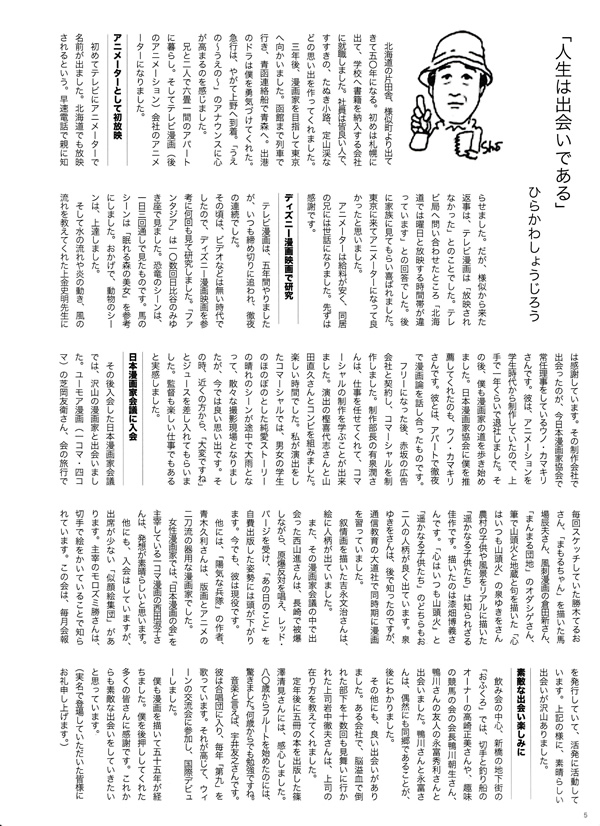 「人生は出会いである」
ひらかわしょうじろう
北海道の片田舎、様似町より出て
きて五〇年になる。初めは札幌に
出て、学校へ書籍を納入する会社
に就職しました。社員は皆良い人で、
すすきの、たぬき小路、定山渓な
どの思い出を作ってくれました。
三年後、漫画家を目指して東京
へ向かいました。函館まで列車で
行き、青函連絡船で青森へ。出港
のドラは僕を勇気づけてくれた。
急行は、やがて上野へ到着。「うえ
の〜うえの〜」のアナウンスに心
が高まるのを感じました。
兄と二人で六畳一間のアパート
に暮らし。そしてテレビ漫画(後
のアニメーション)会社のアニメ
ーターになりました。
アニメーターとして初放映
初めてテレビにアニメーターで
名前が出ました。北海道でも放映
されるという。早速電話で親に知
らせました。だが、様似から来た
返事は、テレビ漫画は「放映され
なかった」とのことでした。テレ
ビ局へ問い合わせたところ「北海
道では曜日と放映する時間帯が違
っています」との回答でした。後
に家族に見てもらい喜ばれました。
東京に来てアニメーターになって良
かったと思いました。
アニメーターは給料が安く、同居
の兄には世話になりました。先ずは
感謝です。
ディズニー漫画映画で研究
テレビ漫画は、五年間やりました
が、いつも締め切りに追われ、徹夜
の連続でした。
その頃は、ビデオなどは無い時代で
したので、ディズニー漫画映画を参
考に何回も見て研究しました。「ファ
ンタジア」は一〇数回日比谷のみゆ
き座で見ました。恐竜のシーンは、
一日三回通しで見たものです。馬の
シーンは「眠れる森の美女」を参考
にしました。おかげで、動物のシー
ンは、上達しました。
そして水の流れや炎の動き、風の
流れを教えてくれた上金史明先生に
は感謝しています。その制作会社で
出会ったのが、今日本漫画家協会で
常任理事をしているウノ・カマキリ
さんです。彼は、アニメーションを
学生時代から制作していたので、上
手で一年くらいで退社しました。そ
の後、僕も漫画家の道を歩き始め
ました。日本漫画家協会に僕を推
薦してくれたのも、ウノ・カマキリ
さんです。彼とは、アパートで徹夜
で漫画論を話し合ったものです。
フリーになった後、赤坂の広告
会社と契約し、コマーシャルを制
作しました。制作部長の有泉潤さ
んは、仕事を任せてくれて、コマ
ーシャルの制作を学ぶことが出来
ました。演出の樫喜代志さんと山
田直久さんとコンビを組みました。
楽しい時間でした。私が演出をし
たコマーシャルでは、男女の学生
のほのぼのとした純愛ストーリー
の晴れのシーンが途中で大雨とな
って、散々な撮影現場となりまし
たが、今では良い思い出です。そ
の時、近くの方から、「大変ですね」
とジュースを差し入れてもらいま
した。監督も楽しい仕事でもある
と実感しました。
日本漫画家会議に入会
その後入会した日本漫画家会議
では、沢山の漫画家と出会いまし
た。ユーモア漫画(一コマ・四コ
マ)の芝岡友衛さん、会の旅行で
毎回スケッチしていた勝木てるお
さん、「まもるちゃん」を描いた馬
場辰夫さん、風刺漫画の倉田新さん、
「まんまる団地」のオダシゲさん、
筆で山頭火と地蔵と句を描いた「心
はいつも山頭火」の泉ゆきをさん、
農村の子供や風景をリアルに描いた
「遥かなる子供たち」は知られざる
佳作です。描いたのは漆畑博義さ
んです。「心はいつも山頭火」と
「遥かなる子供たち」のどちらもお
二人の人柄が良く出ています。泉
ゆきをさんは、後で知ったのですが、
通信教育の大道社で同時期に漫画
を習っていました。
叙情画を描いた吉永文治さんは、
絵に人柄が出ていました。
また、その漫画家会議の中で出
会った西山進さんは、長崎で被爆
しながら、原爆反対を唱え、レッド・
パージを受け、「あの日のこと」を
自費出版した姿勢には頭が下がり
ます。今でも、彼は現役です。
他には、「陽気な兵隊」の作者、
青木久利さんは、版画とアニメの
二刀流の器用な漫画家でした。
女性漫画家では、「日本漫画の会」を
主宰している一コマ漫画の西田淑子さ
んは、発想が素晴らしいと思います。
他にも、入会はしていますが、
出席が少ない「似顔絵集団」があ
ります。主宰のモロズミ勝さんは、
切手で絵をかいていることで知ら
れています。この会は、毎月会報
を発行していて、活発に活動して
います。上記の様に、素晴らしい
出会いが沢山ありました。
素敵な出会い楽しみに
飲み会の中心、新橋の地下街の
「おふくろ」では、切手と釣り船の
オーナーの高崎正美さんや、趣味
の競馬の会の会長鴨川朝生さん、
鴨川さんの友人の永富秀利さんと
出会いました。鴨川さんと永富さ
んは、偶然にも同郷であることが、
後にわかりました。
その他にも、良い出会いがあり
ました。ある会社で、脳溢血で倒
れた部下を十数回も見舞いに行か
れた上司岩中徹夫さんは、上司の
在り方を教えてくれました。
定年後に五冊の本を出版した篠
澤清見さんには、感心しました。
八〇歳からフルートを始めたのには、
驚きました。何歳からでも勉強ですね。
音楽と言えば、宇井友之さんです。
彼は合唱団に入り、毎年「第九」を
歌っています。それが高じて、ウィ
ーンの交流会に参加し、国際デビュ
ーしました。
僕も漫画を描いて五十五年が経
ちました。僕を後押ししてくれた
多くの皆さんに感謝です。これか
らも素敵な出会いをしていきたい
と思っています。
(実名で登場していただいた皆様に
お礼申し上げます。)
5